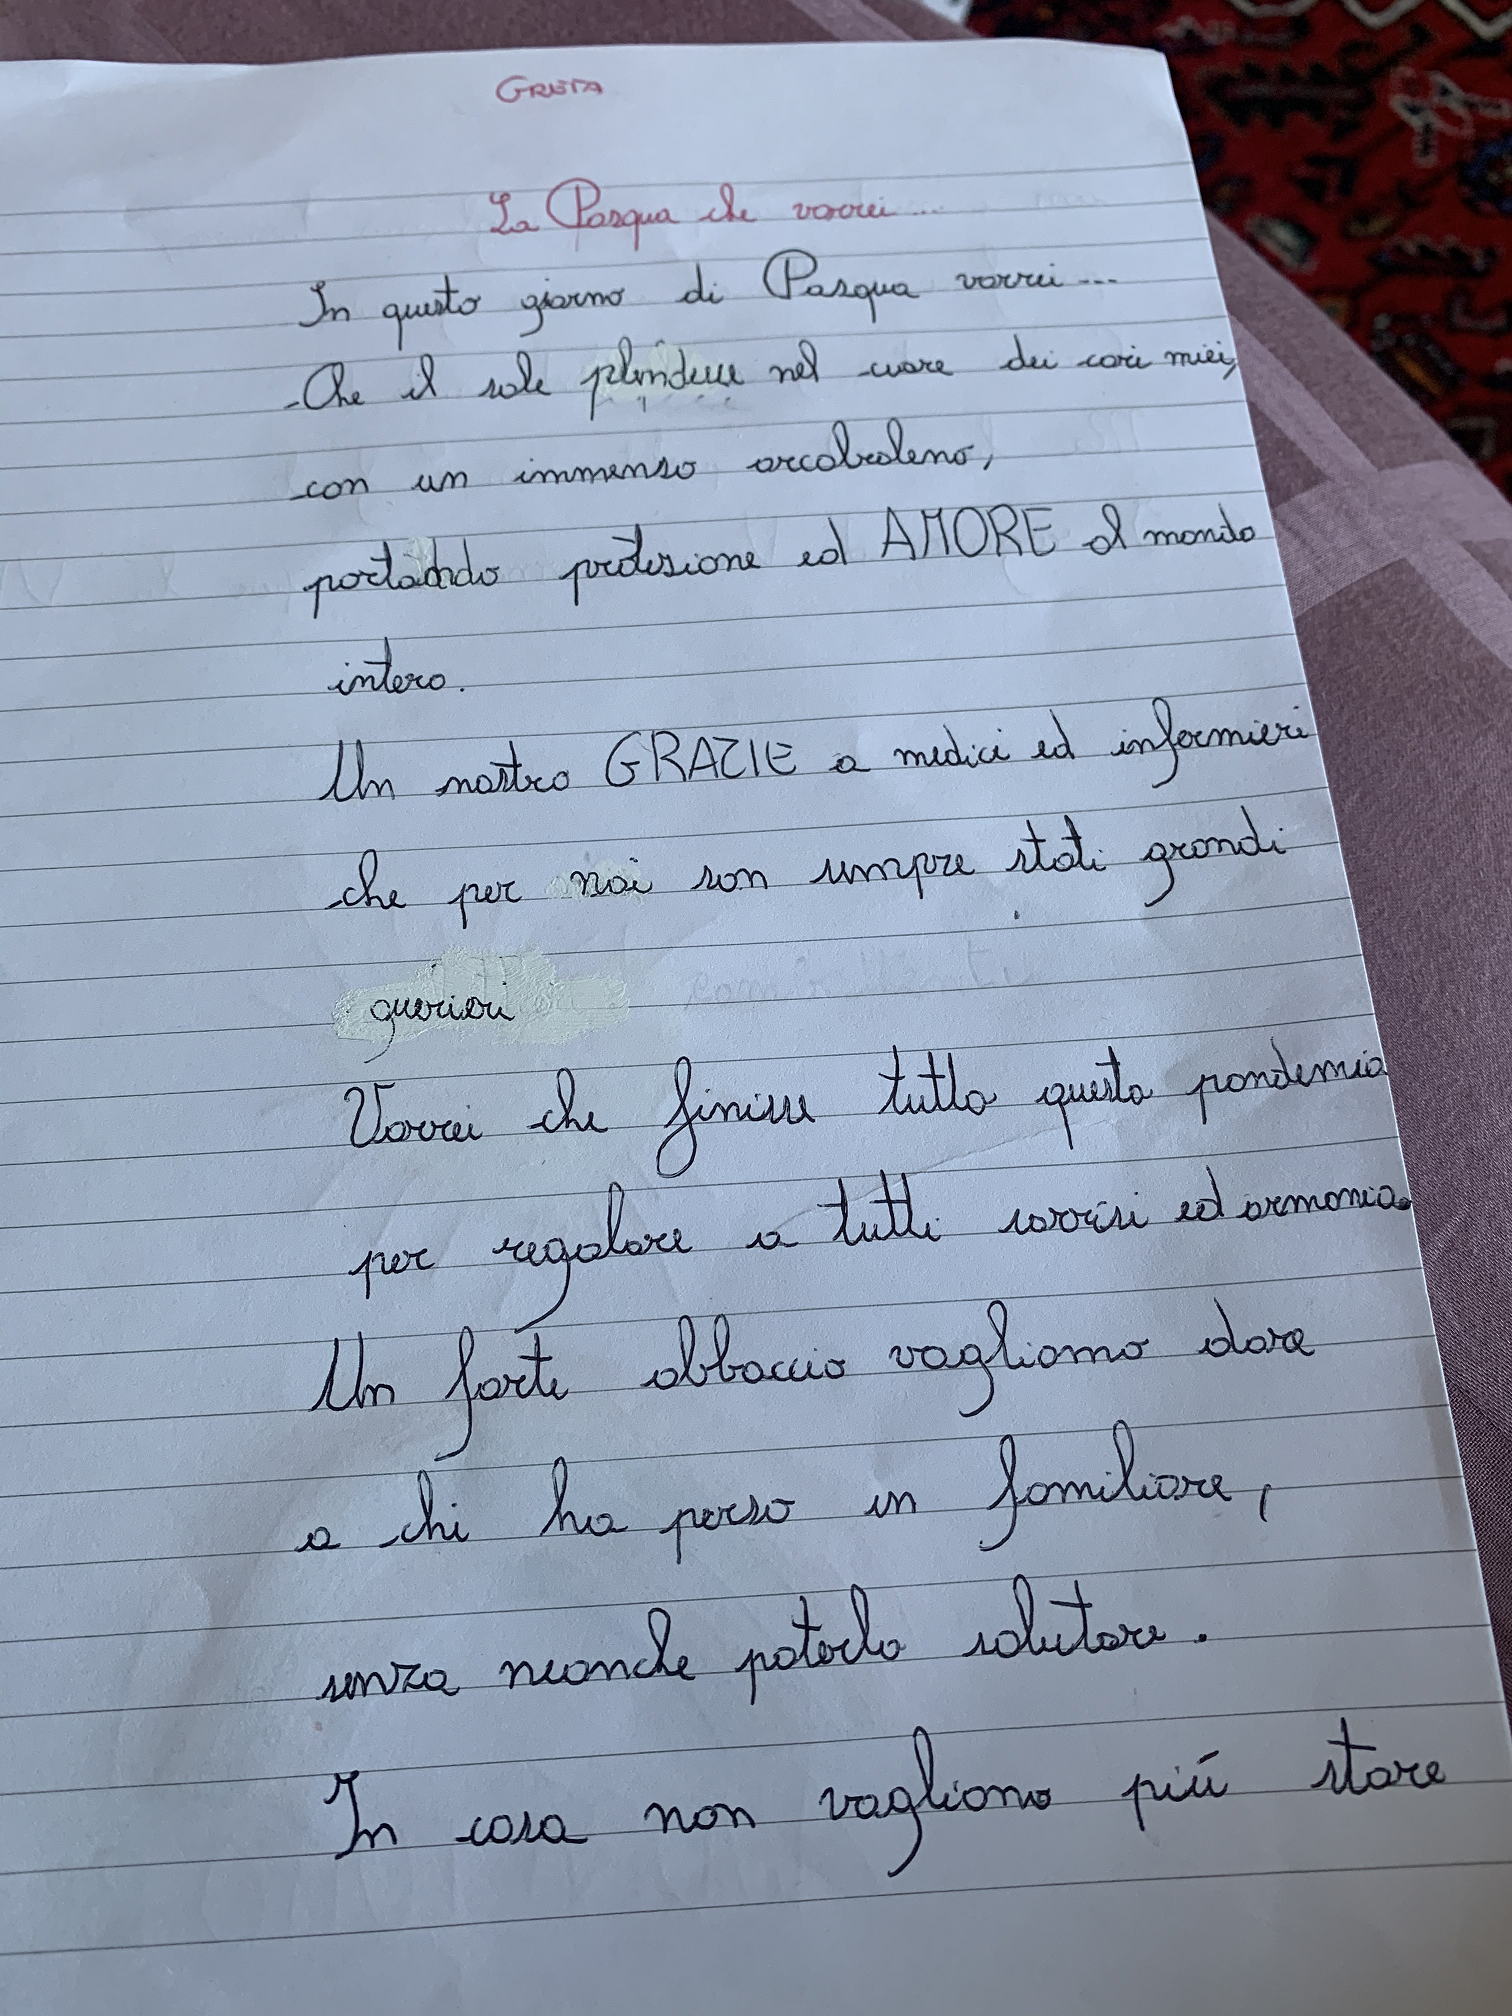 GRETA
La Pasqua che vorrei...
In questo giorno di Pasqua vorrei...
Che il sole plendesse nel cuore dei cari miei,
con un immenso arcobaleno,
portando protezione ed AMORE al mondo
intero.
Un nostro GRAZIE a medici ed infermieri
che per noi son sempre stati grandi
guerieri
Vorrei che finisse tutta questa pandemia
per regalare a tutti sorrisi ed armonia.
Un forte abbaccio vogliamo dare
a chi ha perso un familiare,
senza neanche poterlo salutare.
In casa non vogliono più stare